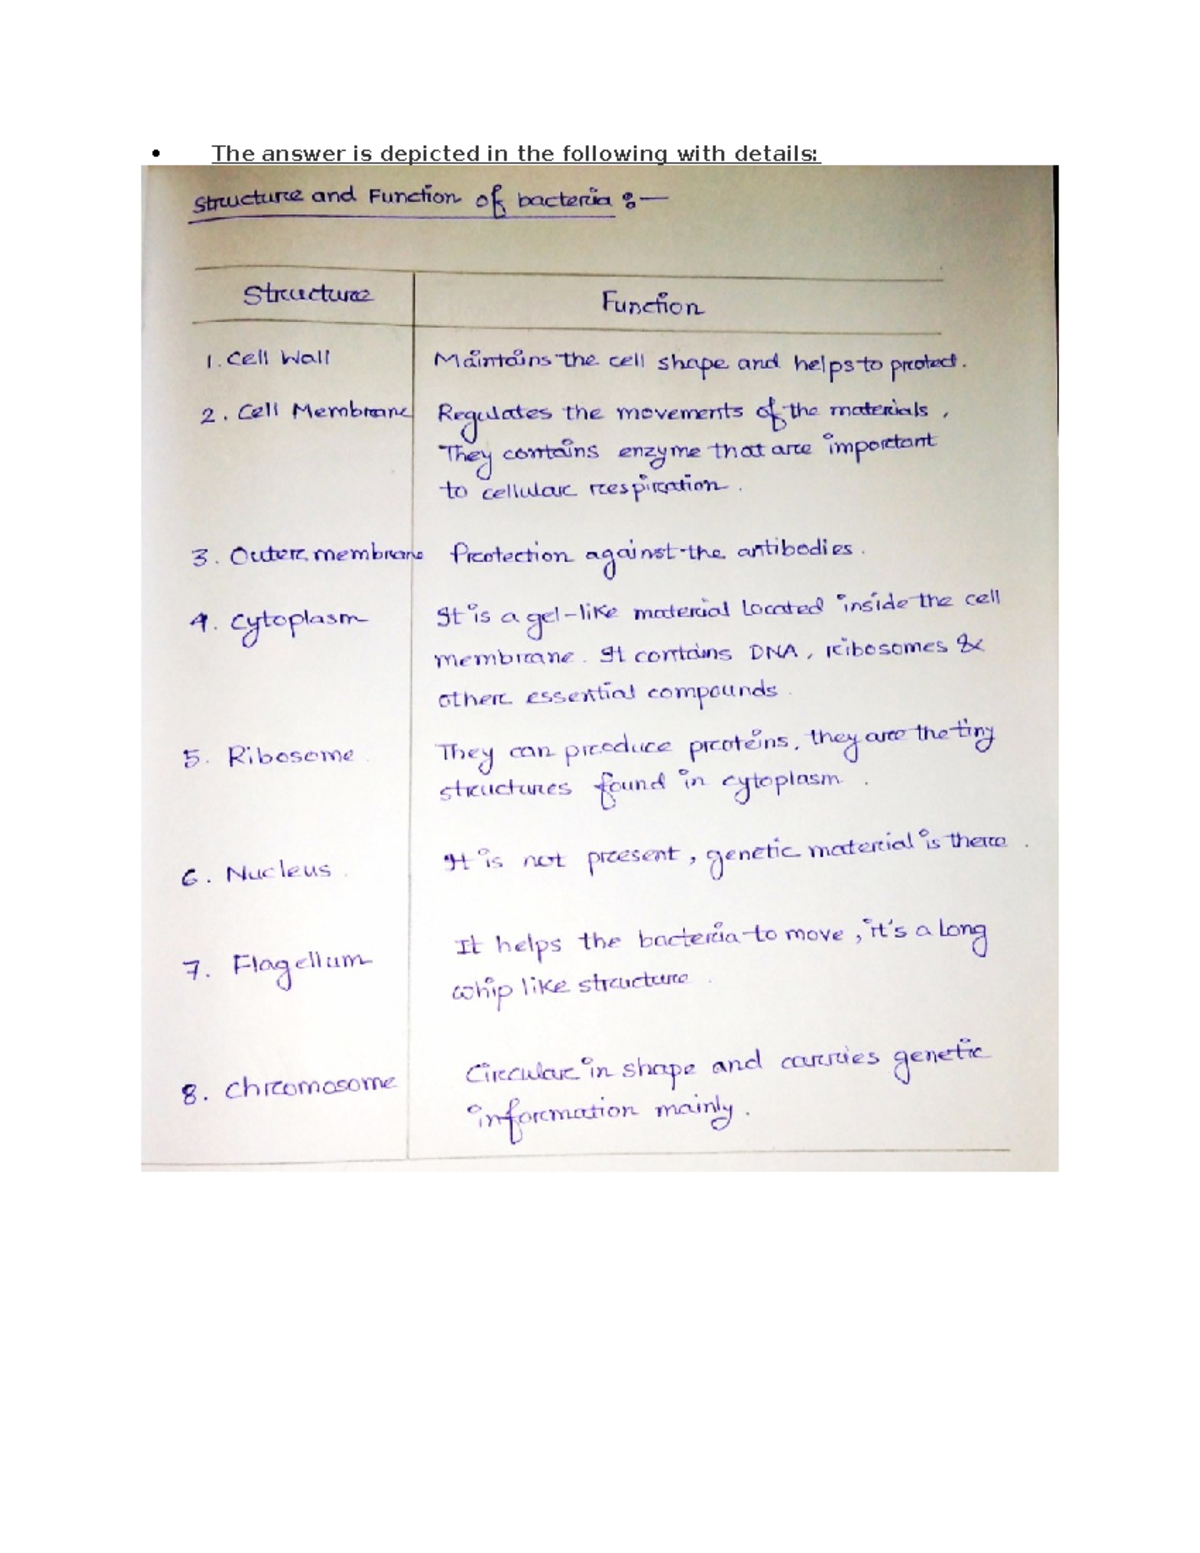 • The answer is depicted in the following with details:
Structure and Function of bacteria :—
Structure Function
1. Cell Wall Maintains the cell shape and helps to protect.
2. Cell Membrane Regulates the movements of the materials,
They contains enzyme that are important
to cellular respiration.
3. Outer membrane Protection against the antibodies.
4. Cytoplasm It is a gel-like material located inside the cell
membrane. It contains DNA, Ribosomes &
other essential compounds.
5. Ribosome They can produce proteins, they are the tiny
structures found in cytoplasm.
6. Nucleus It is not present, genetic material is there.
7. Flagellum It helps the bacteria to move, it's a long
whip like structure.
8. Chromosome Circular in shape and carries genetic
information mainly.